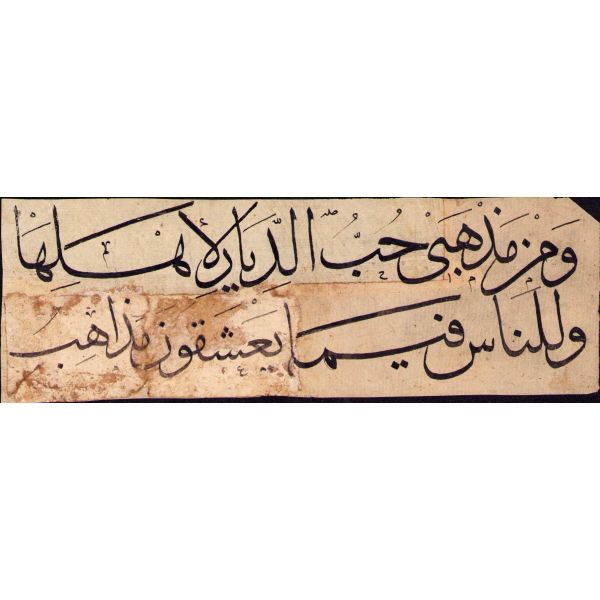 ومن مذهبي حُبُّ الدِّيَارِ لأهلها
وللناس فيما يعشقون مذاهب